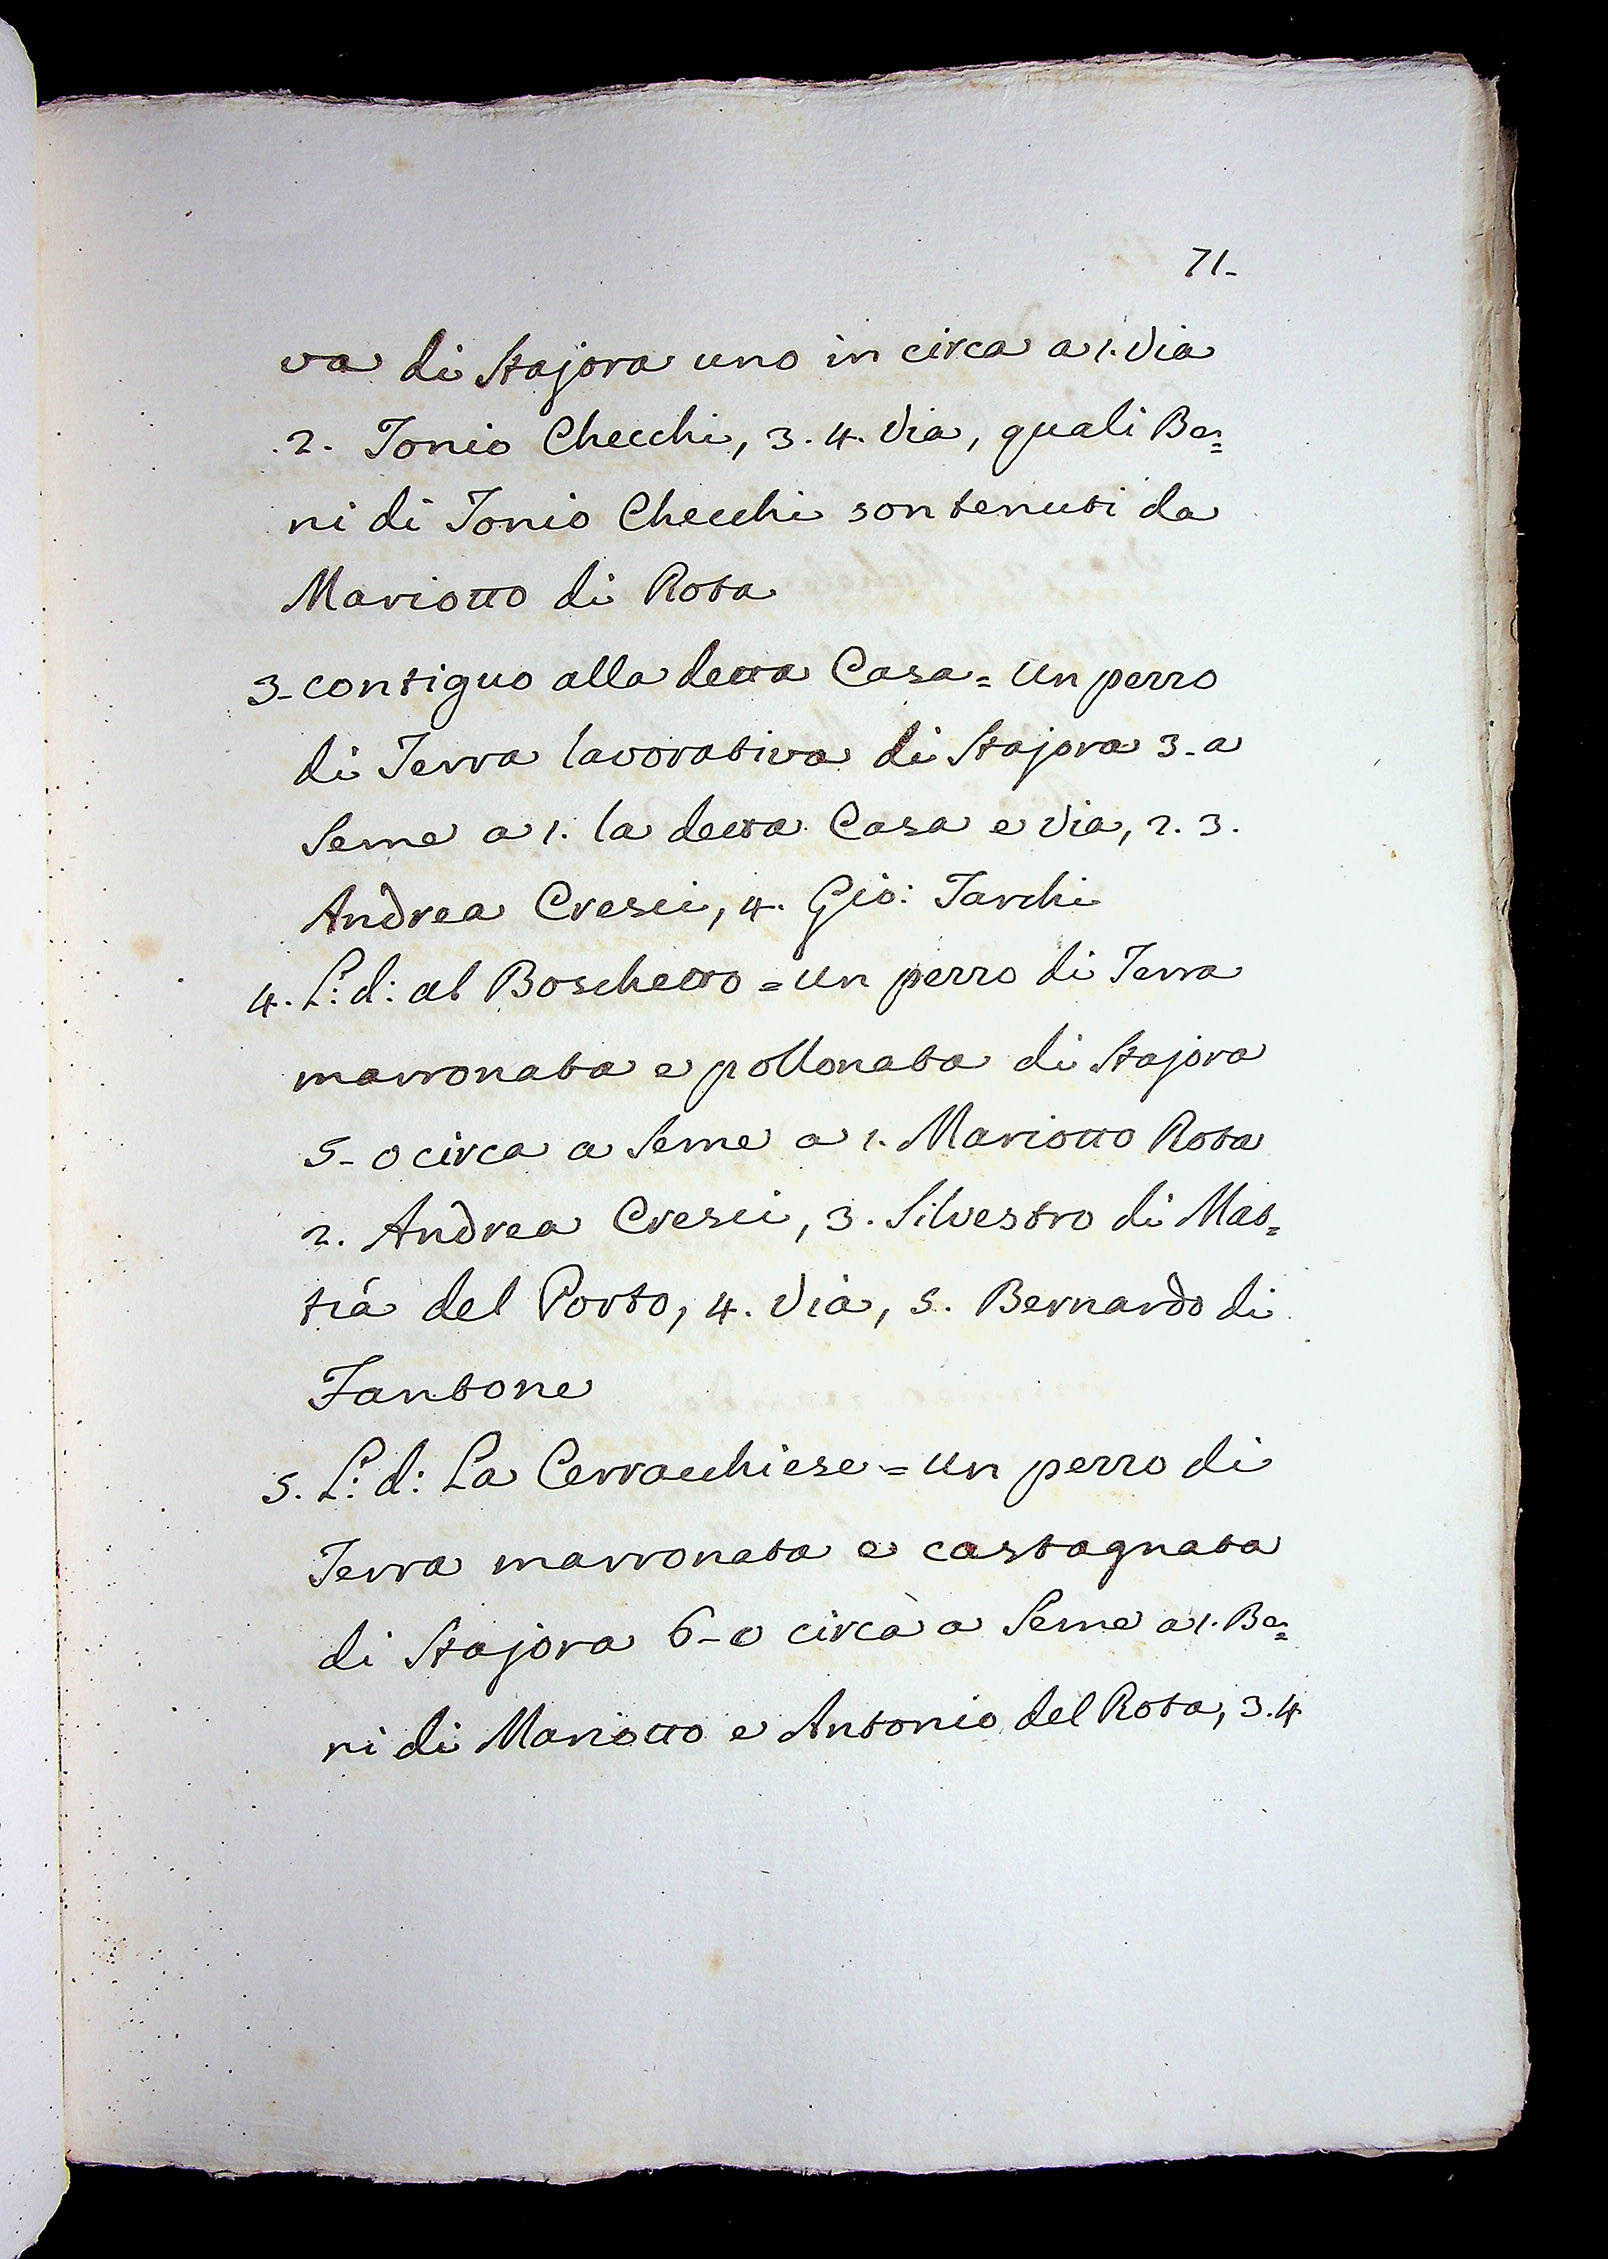 71-
va di Stajora uno in circa a 1. Via
2. Tonio Checchi, 3. 4. Via, quali Be=
ni di Tonio Checchi son tenuti da
Mariotto di Rota
3- contiguo alla detta Casa = Un pezzo
di Terra lavorativa di Stajora 3- a
Seme a 1. la detta Casa e Via, 2. 3.
Andrea Cresci, 4. Gio: Tarchi
4. L: d: al Boschetto = Un pezzo di Terra
marronata e pollonata di Stajora
5- 0 circa a Seme a 1. Mariotto Rota
2. Andrea Cresci, 3. Silvestro di Mat=
tià del Porto, 4. Via, 5. Bernardo di
Fantone
5. L: d: La Cerracchiese = Un pezzo di
Terra marronata e castagnata
di Stajora 6- 0 circa a Seme a 1. Be=
ni di Mariotto e Antonio del Rota, 3. 4